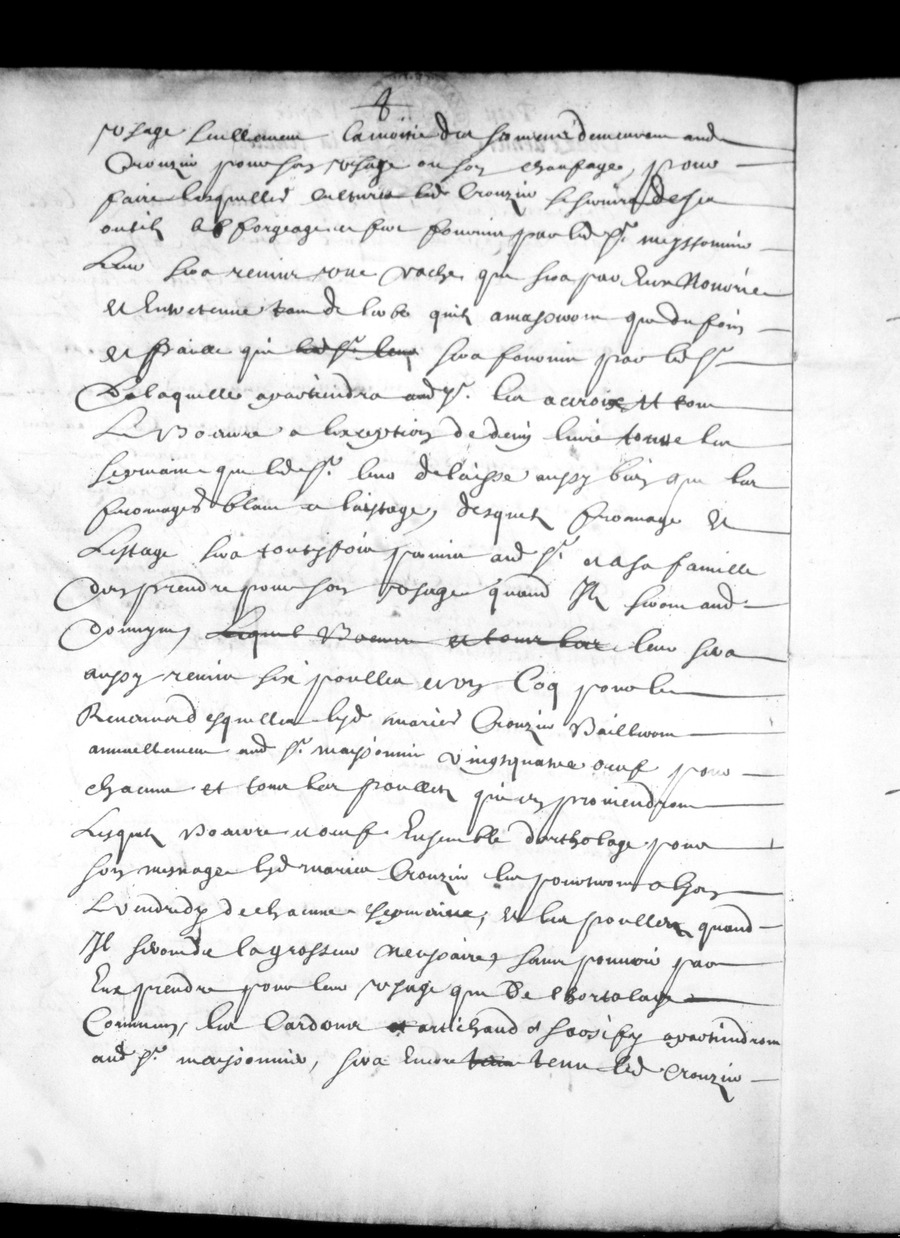 8
usage seullement la moitié des sarments demeurant aud
Crouzin pour son usage ou son chaufage, pour
faire lesquelles cultures led Crouzin se servira de ses
outils le forgeage en sera fourny par led sr. meyssonnier
Leur sera remise une vache qui sera par Eux Nourrie
et Entretenue tant de lerbe quils amasseront que du foin
et paille qui led sr. leur sera fourny par led sr
De laquelle apartiendra aud sr. les acroix et tout
Le Beurre a lexception de demy livre toutes les
semaines que led sr. leur delaisse aussy bien que les
fromages blanc a laissage, desquels fromage et
Lestage sera toutesfois permis aud sr. et a sa famille
den prendre pour son usage quand Il seront aud
domayne, Lequel Beurre et tout les leur sera
aussy remis six poulles et un Coq pour le
Revenu desquelles lesd mariés Crouzin Bailleront
annuellement aud sr. meyssonnier vingtquatre oeuf pour
chacune et tout les poullets qui en proviendront
Lesquels Beurre et oeuf Ensemble dortholage pour
son mesnage lesd mariés Crouzin les porteront a lion
Le vendredy de chacune semaine, et les poullets quand
Il seront de la grosseur necessaire, sans pouvoir par
Eux prendre pour leur usage que De lhortolage
Commun, les Cardons et artichaud et sarsify apartiendront
aud sr. meyssonnier, sera Encore tenu led Crouzin